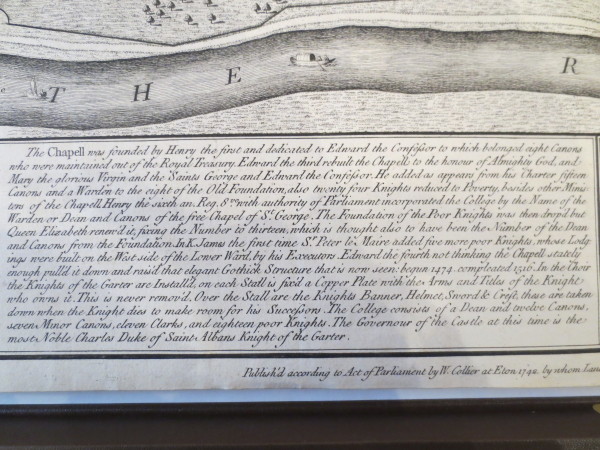 THE R
The Chapell was founded by Henry the first and dedicated to Edward the Confeſsor to which belonged eight Canons
who were maintained out of the Royal Treasury. Edward the third rebuilt the Chapell, to the honour of Almighty God, and
Mary the glorious Virgin and the Saints George and Edward the Confeſsor. He added as appears from his Charter fifteen
Canons and a Warden to the eight of the Old Foundation, also twenty four Knights reduced to Poverty, besides other Minis-
ters of the Chapell. Henry the sixth an. Reg. 8.vo with authority of Parliament incorporated the College by the Name of the
Warden or Dean and Canons of the free Chapel of St. George. The Foundation of the Poor Knights was then drop'd but
Queen Elizabeth renew'd it, fixing the Number to thirteen, which is thought also to have been the Number of the Dean
and Canons from the Foundation. In K. James the first time Sr. Peter le Maire added five more poor Knights, whose Lodg
ings were built on the West side of the Lower Ward, by his Executors. Edward the fourth not thinking the Chapell stately
enough pull'd it down and rais'd that elegant Gothick Structure that is now seen: begun 1474. compleated 1516. In the Choir
the Knights of the Garter are Install'd, on each Stall is fix'd a Copper Plate with the Arms and Titles of the Knight
who owns it. This is never remov'd. Over the Stall are the Knights Banner, Helmet, Sword & Crest, those are taken
down when the Knight dies to make room for his Succeſsors. The College consists of a Dean and twelve Canons,
seven Minor Canons, eleven Clarks, and eighteen poor Knights. The Governour of the Castle at this time is the
most Noble Charles Duke of Saint Albans Knight of the Garter.
Publish'd according to Act of Parliament by W. Collier at Eton 1742. by whom Land